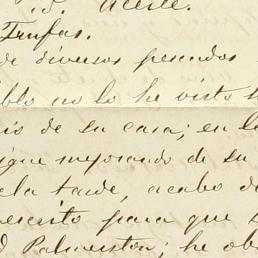 id. Aceite.
Trufas.
de diversos pescados
blo no lo he visto
de su casa; en
sigue mejorando de su
la tarde, acabo d
escrito para que s
Palmerston; he ob